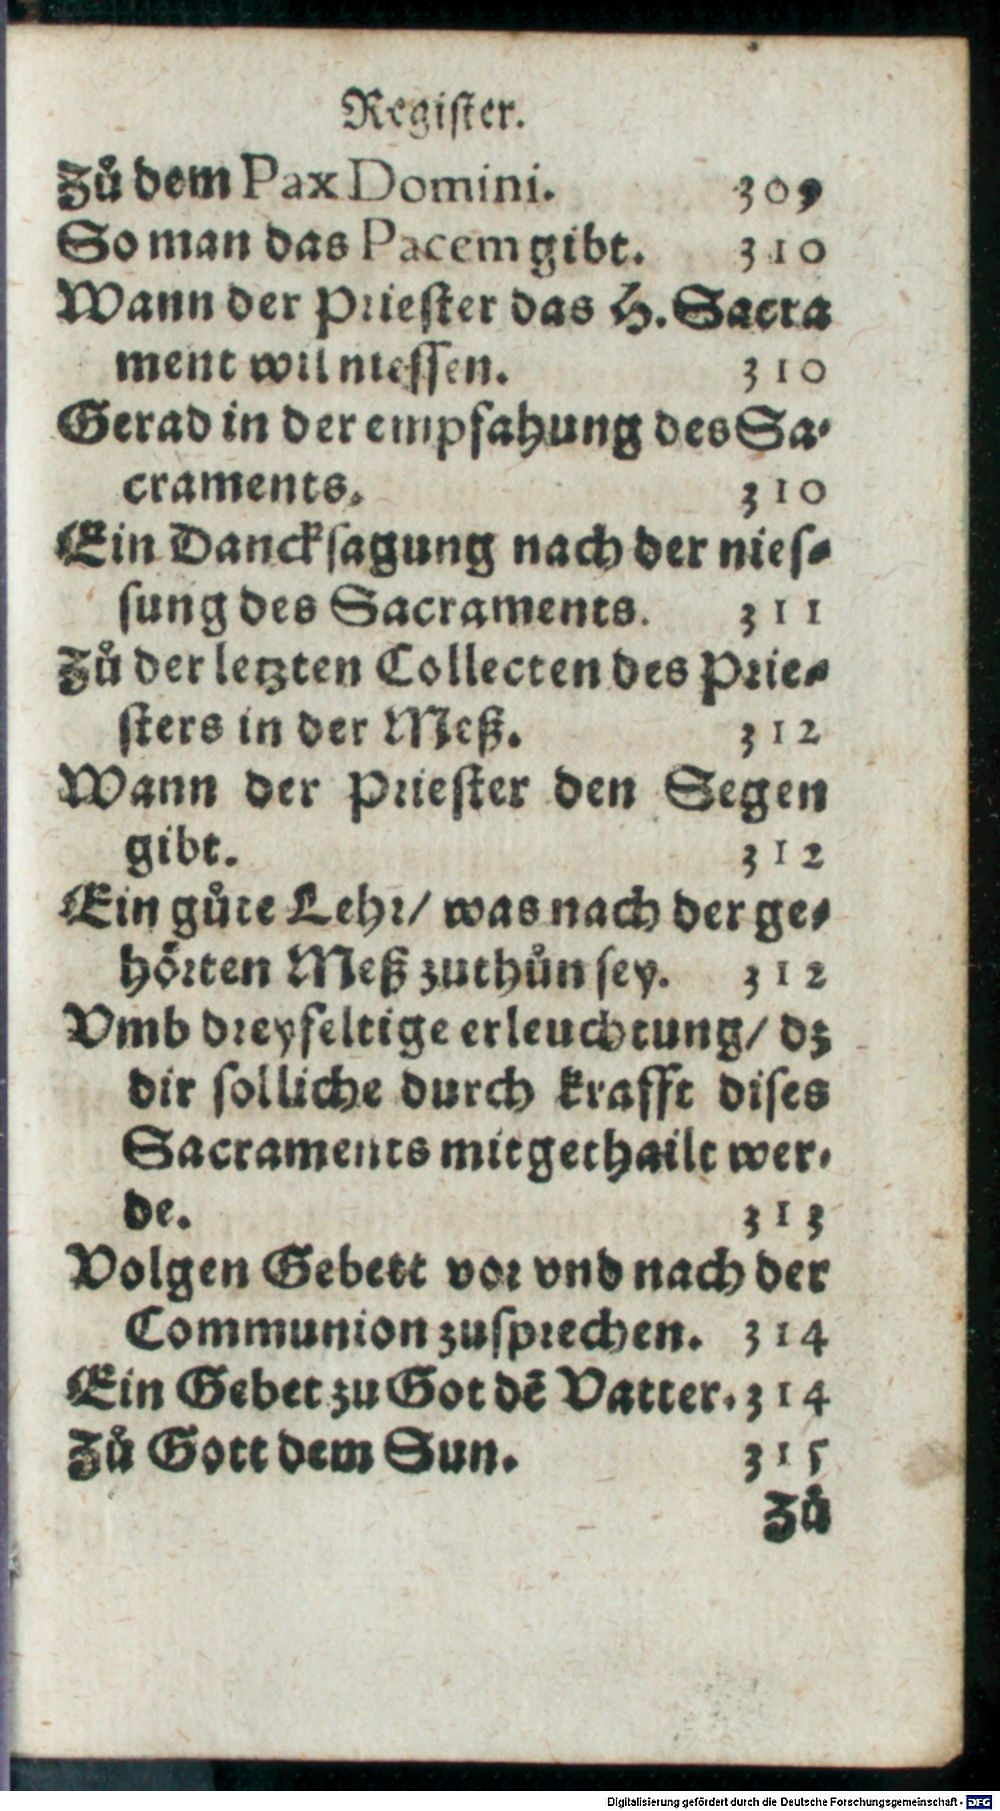 Register.
Zů dem Pax Domini. 309
So man das Pacem gibt. 310
Wann der Priester das H. Sacra
ment wil niessen. 310
Gerad in der empfahung des Sa-
craments. 310
Ein Dancksagung nach der nies-
sung des Sacraments. 311
Zů der letzten Collecten des Prie-
sters in der Meß. 312
Wann der Priester den Segen
gibt. 312
Ein gůte Lehr/ was nach der ge-
hörten Meß zuthůn sey. 312
Vmb dreyfeltige erleuchtung/ dz
dir solliche durch krafft dises
Sacraments mitgethailt wer-
de. 313
Volgen Gebett vor vnd nach der
Communion zusprechen. 314
Ein Gebet zu Got dē Vatter. 314
Zů Gott dem Sun. 315
Zů
Digitalisierung gefördert durch die Deutsche Forschungsgemeinschaft - DFG